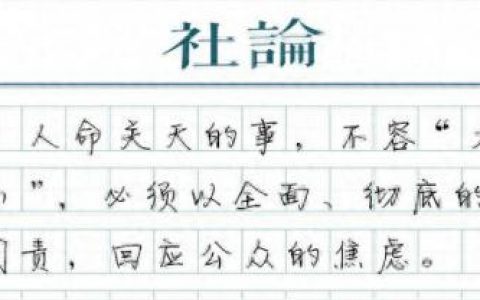 社論
人命关天的事，不容“
”，必须以全面、彻底的
责，回应公众的焦虑。